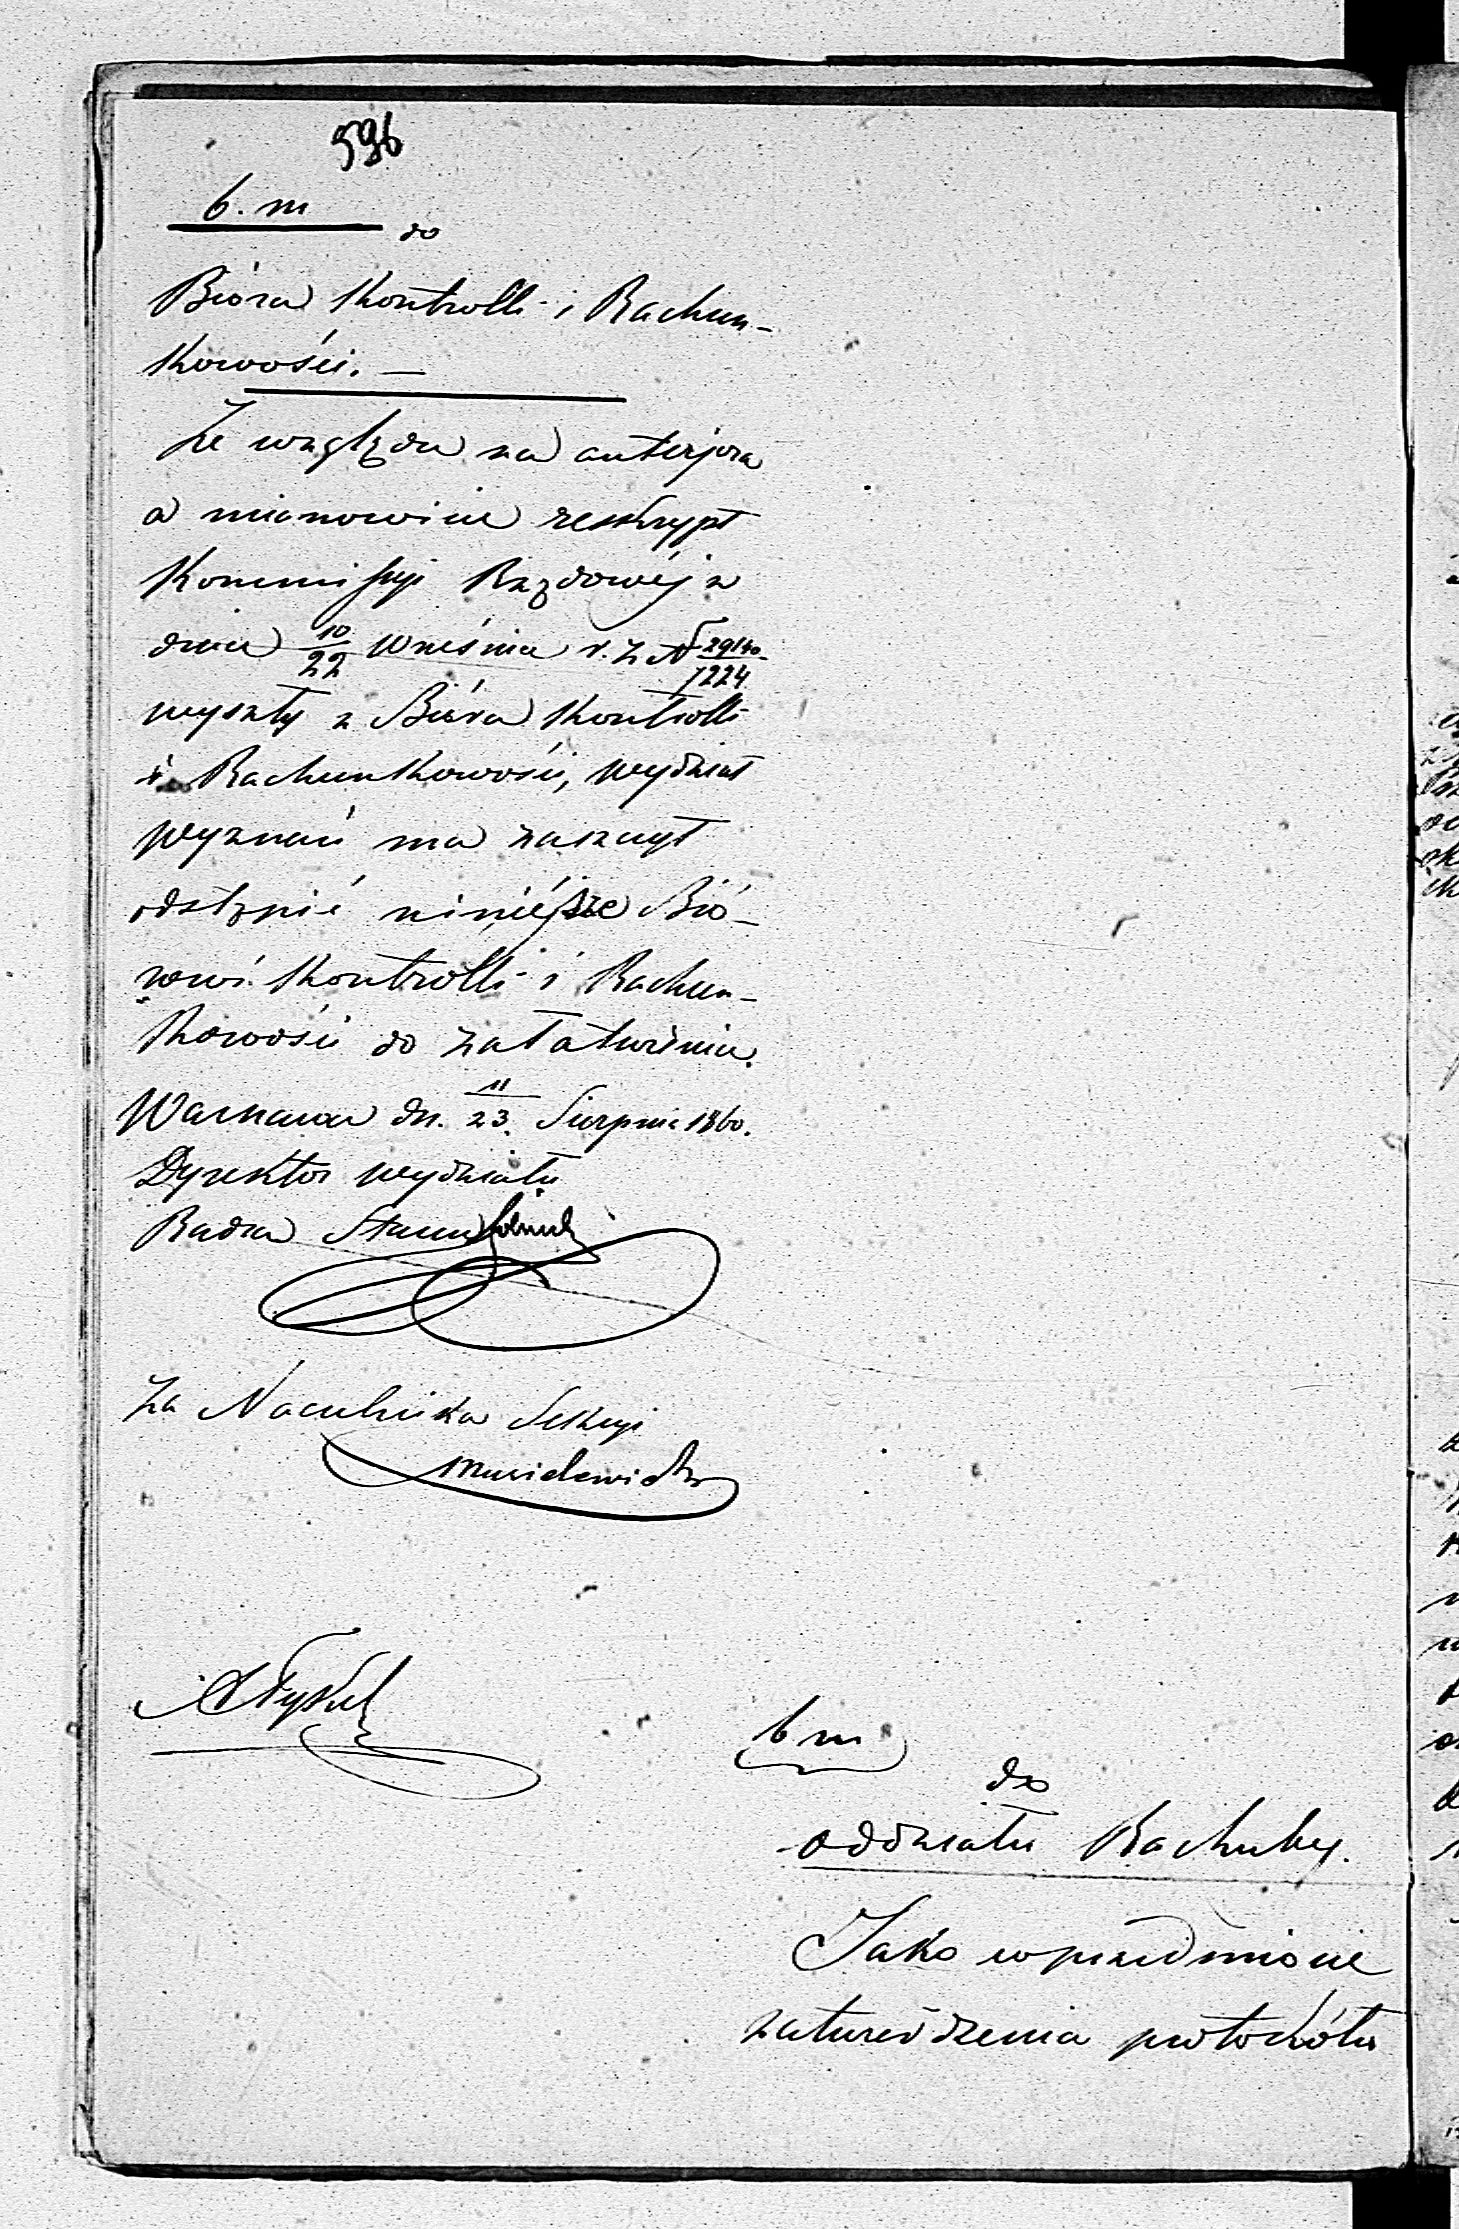 596
b. m
do
Bióra Kontrolli i Rachun-
kowości. —
Ze względu na anterjora
a mianowicie reskrypt
Kommissyi Rządowéj z
dnia 10/22 Września r. z. N 29140/7224
wyszły z Bióra Kontrolli
i Rachunkowości, Wydział
Wyznań ma zaszczyt
odstąpić niniéjsze Bió-
rowi Kontrolli i Rachun-
kowości do załatwienia.
Warszawa dn. 11/23. Sierpnia 1860.
Dyrektor Wydziału
Radca Stanu
Za Naczelnika Sekcyi
b m
do
Oddziału Rachuby.
Jako w przedmiocie
zatwierdzenia protokółu